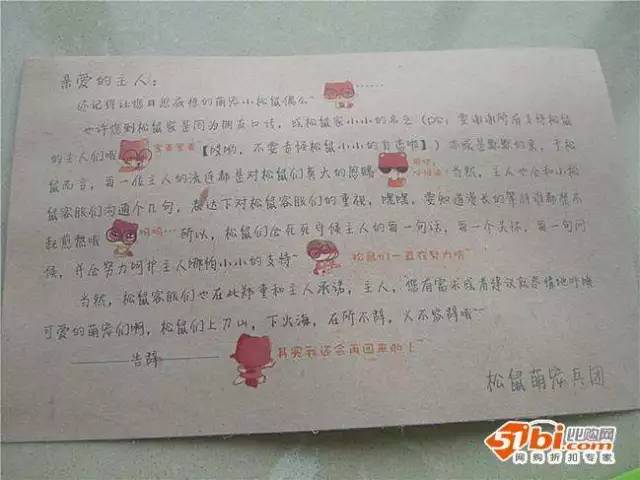 亲爱的主人：
还记得让您日思夜想的萌宠小松鼠偶么~ ……
也许您到松鼠家是因为朋友口话，或松鼠家小小的名气（PS：要谢谢所有支持松鼠
的主人们哦 害羞害羞【哎哟，不要责怪松鼠小小的自恋啦】）亦或是默默的来，于松
鼠而言，每一位主人的法近都是对松鼠们莫大的恩赐 当然，主人也会和小松
鼠客服们沟通个几句，表达下对松鼠客服们的重视，嘿嘿，要知道漫长的等待谁都禁不
起煎熬哦 呜呜…所以，松鼠们会死死守候主人的每一句话，每一个关怀，每一句问
候，并会努力呵护主人哪怕小小的支持~ 松鼠们一直在努力哦~
当然，松鼠客服们也在此郑重和主人承诺，主人，您有需求或者建议就尽情地呼唤
可爱的萌宠们啊，松鼠们上刀山，下火海，在所不辞，义不容辞哦~
——告辞—— 其实我还会再回来的！~
松鼠萌宠兵团
51bi.com 比购网
网购折扣专家